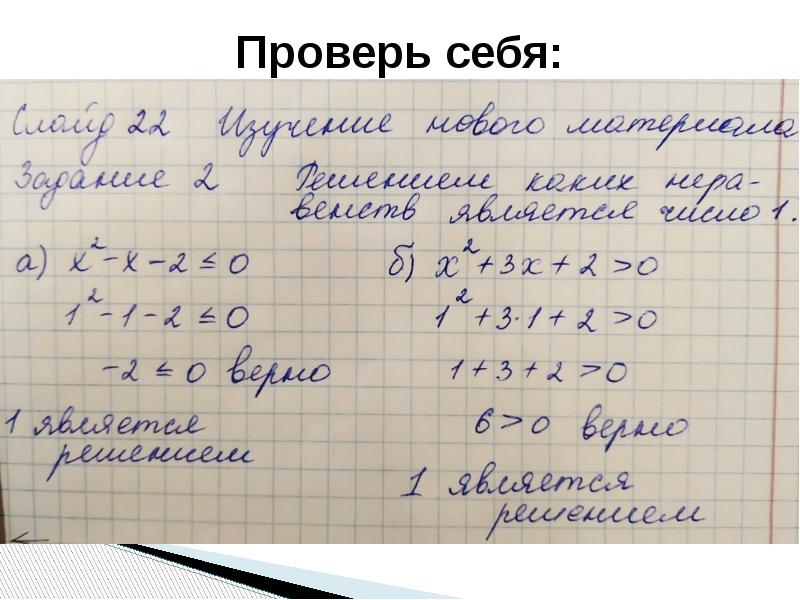 Проверь себя:
Слайд 22 Изучение нового материала
Задание 2 Решением каких нера-
венств является число 1.
а) x²-x-2≤0
1²-1-2≤0
-2≤0 верно
1 является
решением
б) x²+3x+2>0
1²+3·1+2>0
1+3+2>0
6>0 верно
1 является
решением